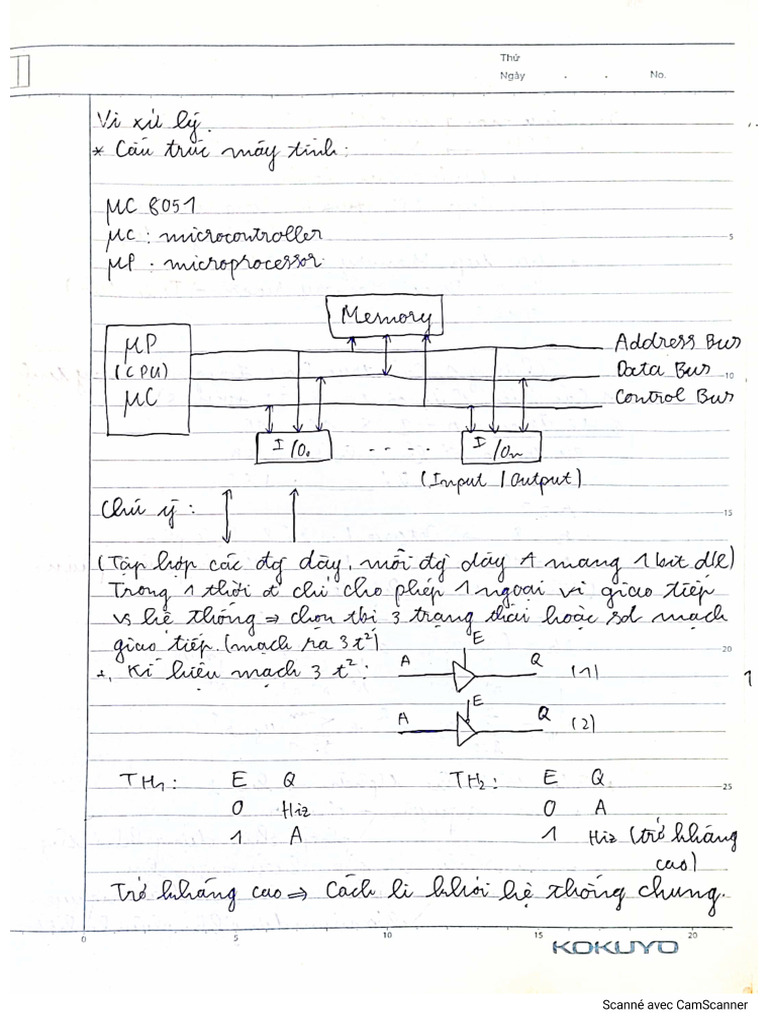 Thứ
Ngày . . No.
Vi xử lý.
* Cấu trúc máy tính:
μC 8051
μC: microcontroller
μP: microprocessor
5
Memory
μP
(CPU)
μC
Address Bus
Data Bus
10
Control Bus
I/O₀ - - - - I/Oₙ
(Input / Output)
Chú ý:
15
(Tập hợp các đg dây, mỗi đg dây A mang 1 bit dl)
Trong 1 thời đ chỉ cho phép 1 ngoại vi giao tiếp
vs hệ thống ⇒ chọn tbi 3 trạng thái hoặc sd mạch
giao tiếp. (mạch ra 3 t²)
20
+, Kí hiệu mạch 3 t²: A E Q (1)
A E Q (2)
TH₁: E Q TH₂: E Q
25
0 Hiz 0 A
1 A 1 Hiz (trở kháng
cao)
Trở kháng cao ⇒ Cách li khỏi hệ thống chung.
0 5 10 15 20
KOKUYO
Scanné avec CamScanner